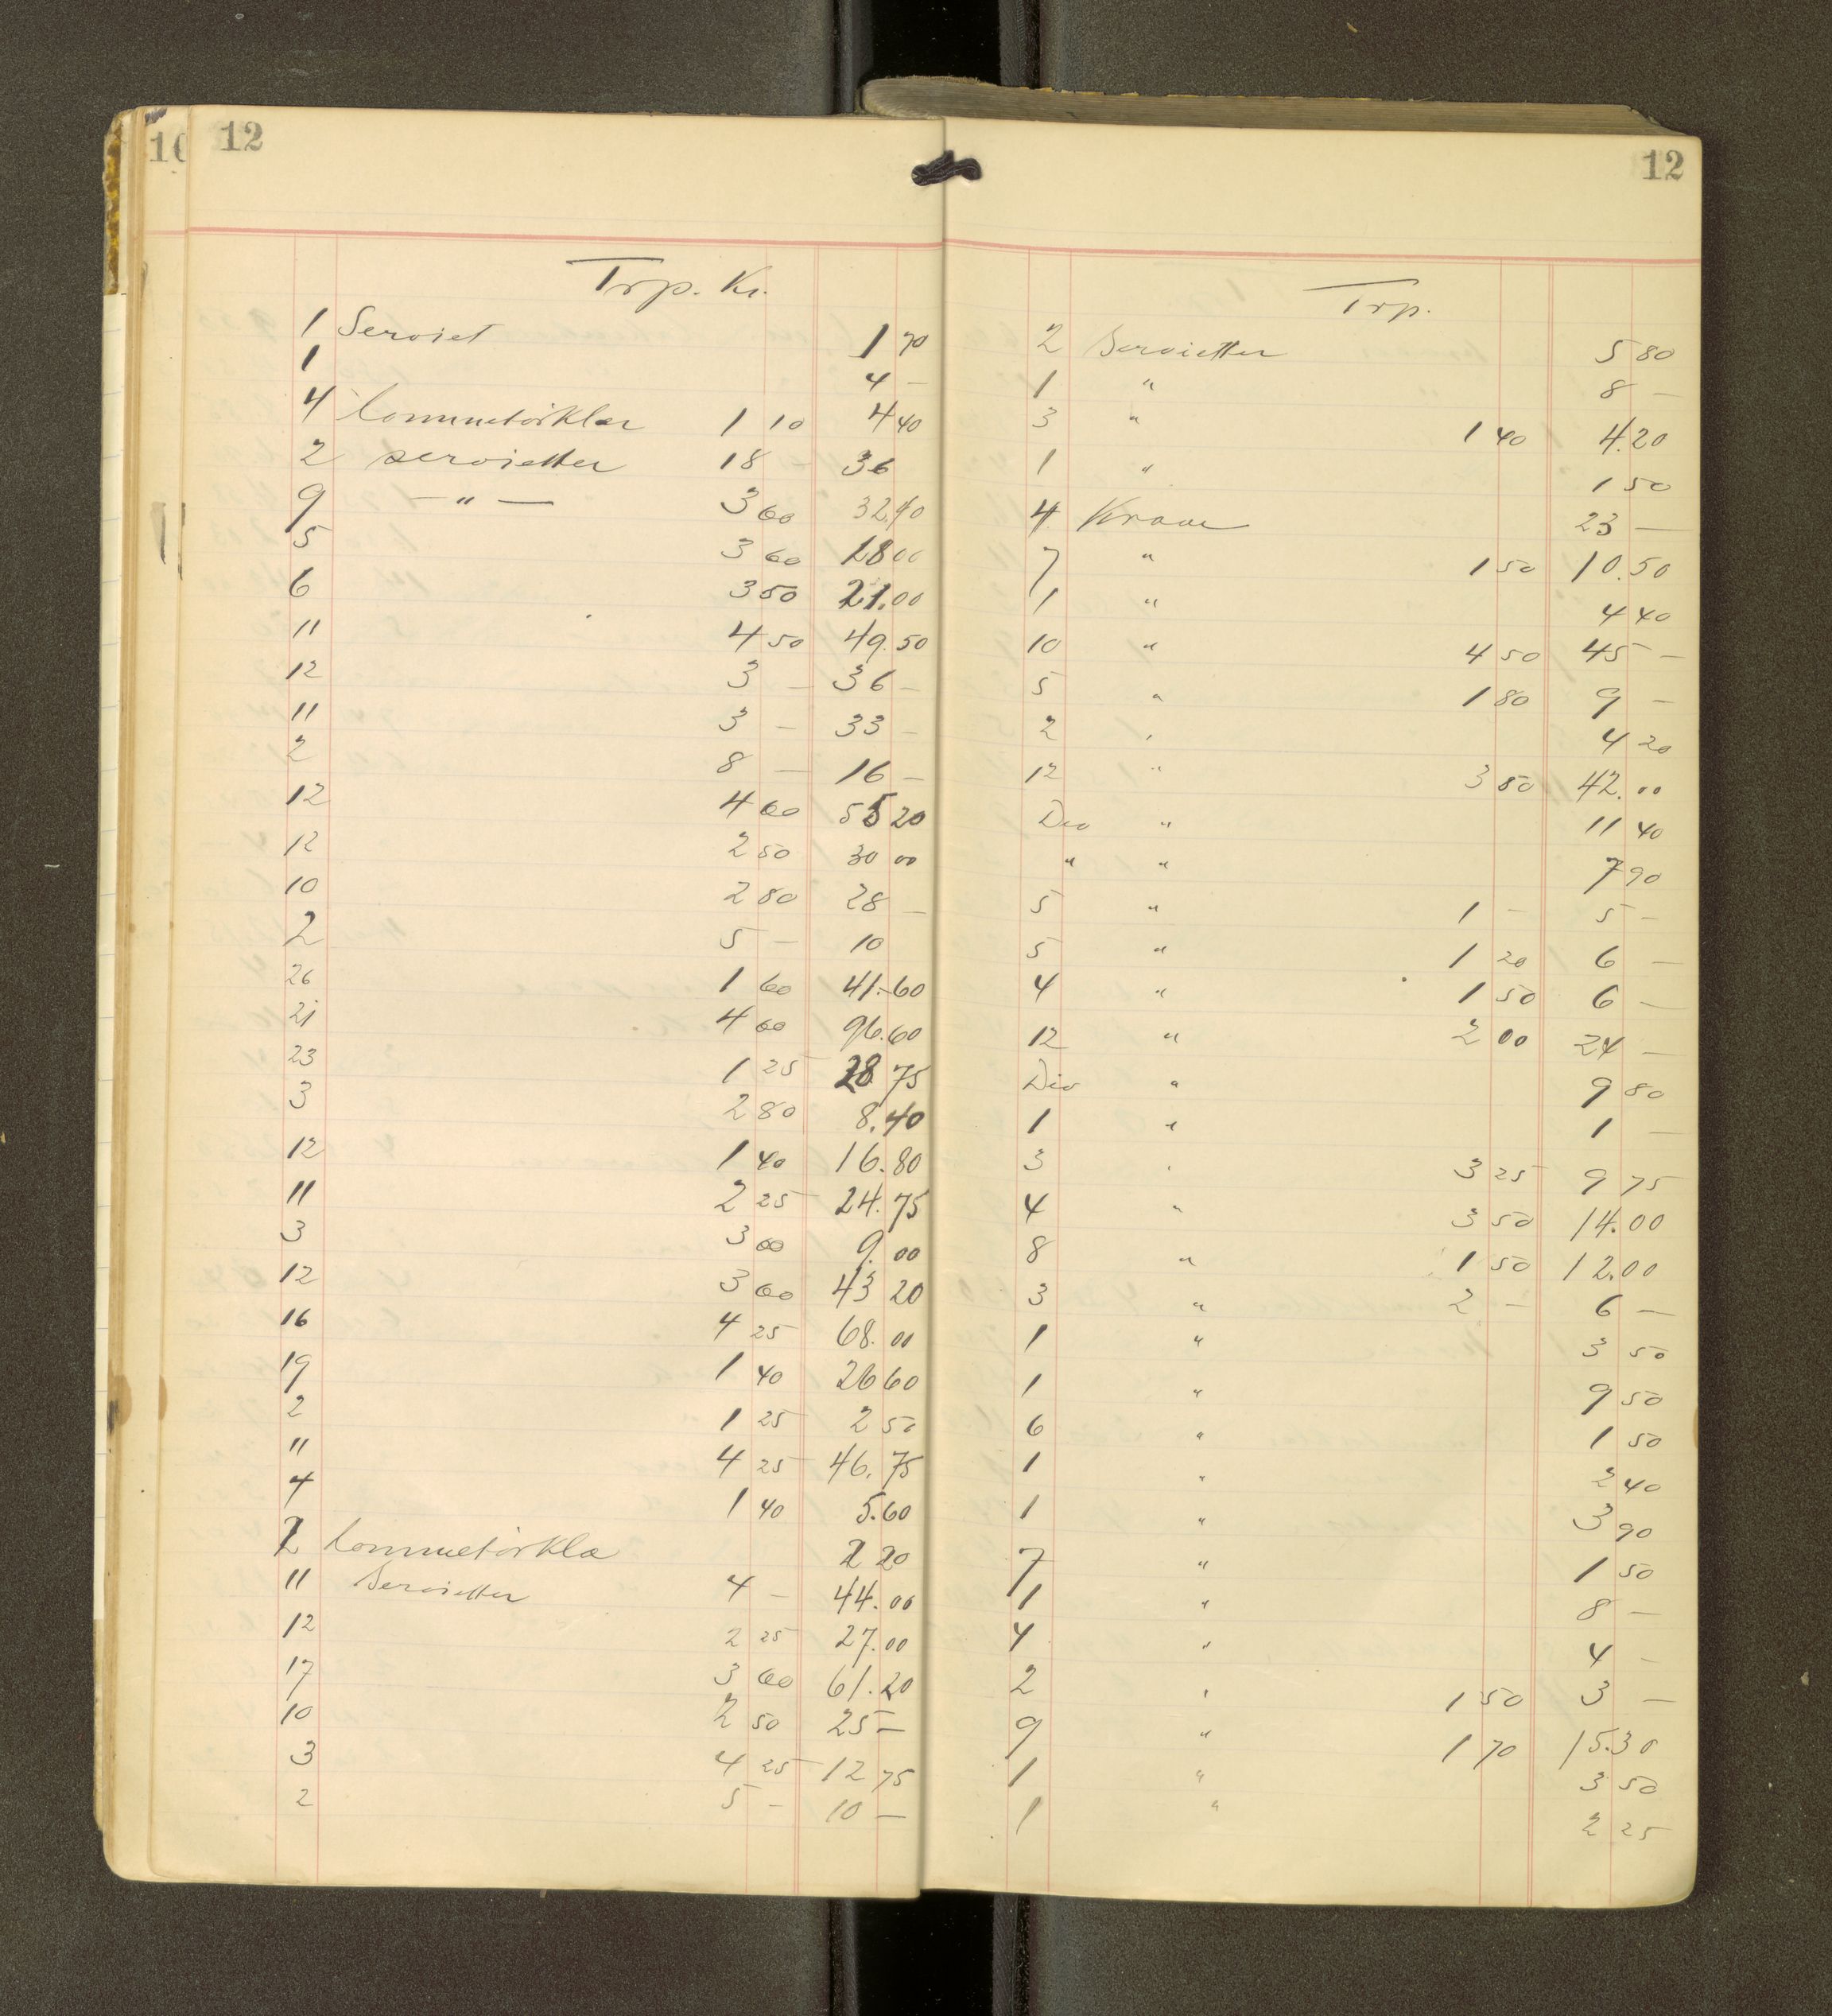 10
12
Trp. Kr.
1 Serviet 1 70
1 4 –
4 Lommetörklær 1 10 4 40
2 servietter 18 – 36
9 – " – 3 60 32.40
5 3 60 18 00
6 3 50 21.00
11 4 50 49.50
12 3 – 36 –
11 3 – 33 –
2 8 – 16 –
12 4 60 55 20
12 2 50 30 00
10 2 80 28 –
2 5 – 10
26 1 60 41.–60
21 4 60 96.60
23 1 25 28 75
3 2 80 8.40
12 1 40 16.80
11 2 25 24.75
3 3 00 9.00
12 3 60 43 20
16 4 25 68.00
19 1 40 26 60
2 1 25 2 50
11 4 25 46.75
4 1 40 5.60
2 Lommetörkla 2 20
11 Servietter 4 – 44.00
12 2 25 27.00
17 3 60 61.20
10 2 50 25 –
3 4 25 12 75
2 5 – 10 –
12
Trp.
2 Servietter 5 80
1 " 8 –
3 " 1 40 4.20
1 " 1 50
4 Krave 23 –
7 " 1 50 10.50
1 " 4 40
10 " 4 50 45 –
5 " 1 80 9 –
2 " 4 20
12 " 3 50 42.00
Div " 11 40
" " 7 90
5 " 1 – 5 –
5 " 1 20 6 –
4 " 1 50 6 –
12 " 2 00 24 –
Div " 9 80
1 " 1 –
3 " 3 25 9 75
4 " 3 50 14.00
8 " 1 50 12.00
3 " 2 – 6 –
1 " 3 50
1 " 9 50
6 " 1 50
1 " 2 40
1 " 3 90
7 " 1 50
1 " 8 –
4 " 4 –
2 " 1 50 3 –
9 " 1 70 15.30
1 " 3 50
1 " 2 25